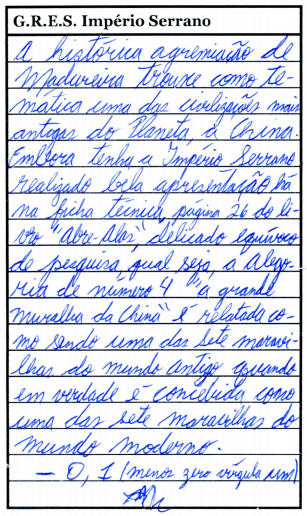 G.R.E.S. Império Serrano
A histórica agremiação de
Madureira trouxe como te-
mática uma das civilizações mais
antigas do Planeta, a China.
Embora tenha a Império Serrano
realizado bela apresentação há
na ficha técnica, página 26 do li-
vro "Abre-Alas", delicado equívoco
de pesquisa, qual seja, a Alego-
ria de número 4 "a grande
muralha da China" é relatada co-
mo sendo uma das sete maravi-
lhas do mundo antigo, quando
em verdade é concebida como
uma das sete maravilhas do
mundo moderno.
— 0,1 (menos zero vírgula um)